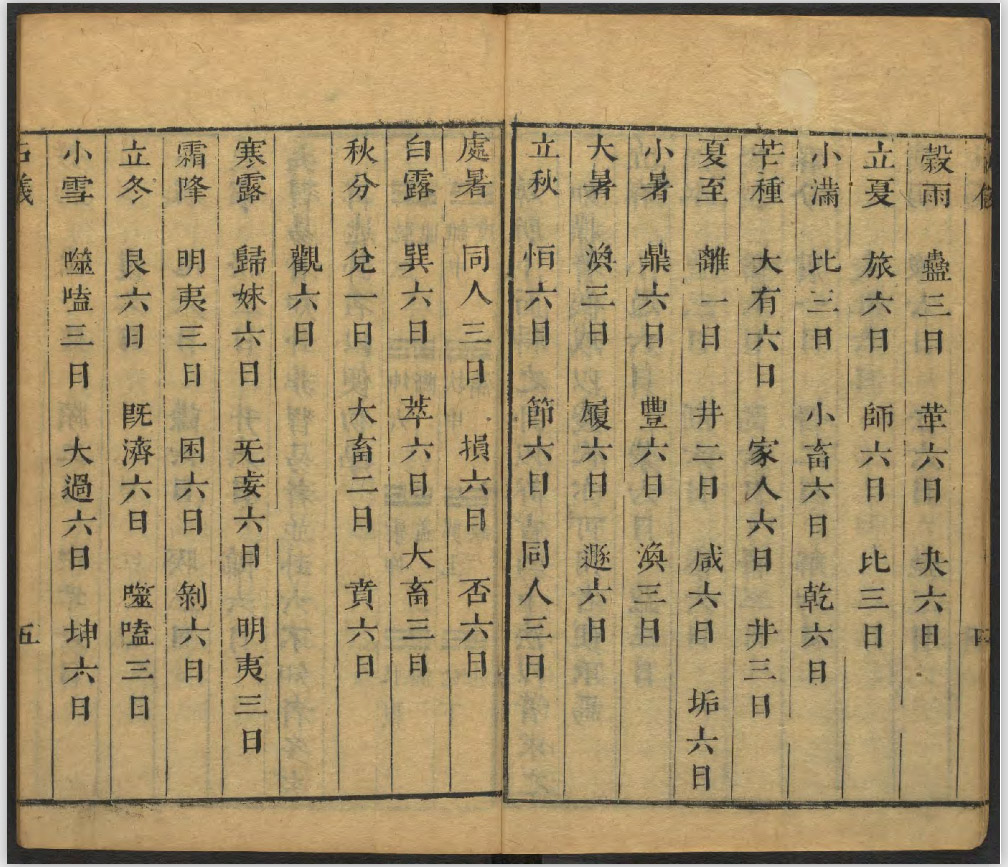 穀雨 蠱三日 革六日 夬六日
立夏 旅六日 師六日 比三日
小滿 比三日 小畜六日 乾六日
芒種 大有六日 家人六日 井三日
夏至 離一日 井二日 咸六日 垢六日
小暑 鼎六日 豐六日 渙三日
大暑 渙三日 履六日 遯六日
立秋 恒六日 節六日 同人三日
處暑 同人三日 損六日 否六日
白露 巽六日 萃六日 大畜三日
秋分 兌一日 大畜二日 賁六日
觀六日
寒露 歸妹六日 无妄六日 明夷三日
霜降 明夷三日 困六日 剝六日
立冬 艮六日 旣濟六日 噬嗑三日
小雪 噬嗑三日 大過六日 坤六日
五